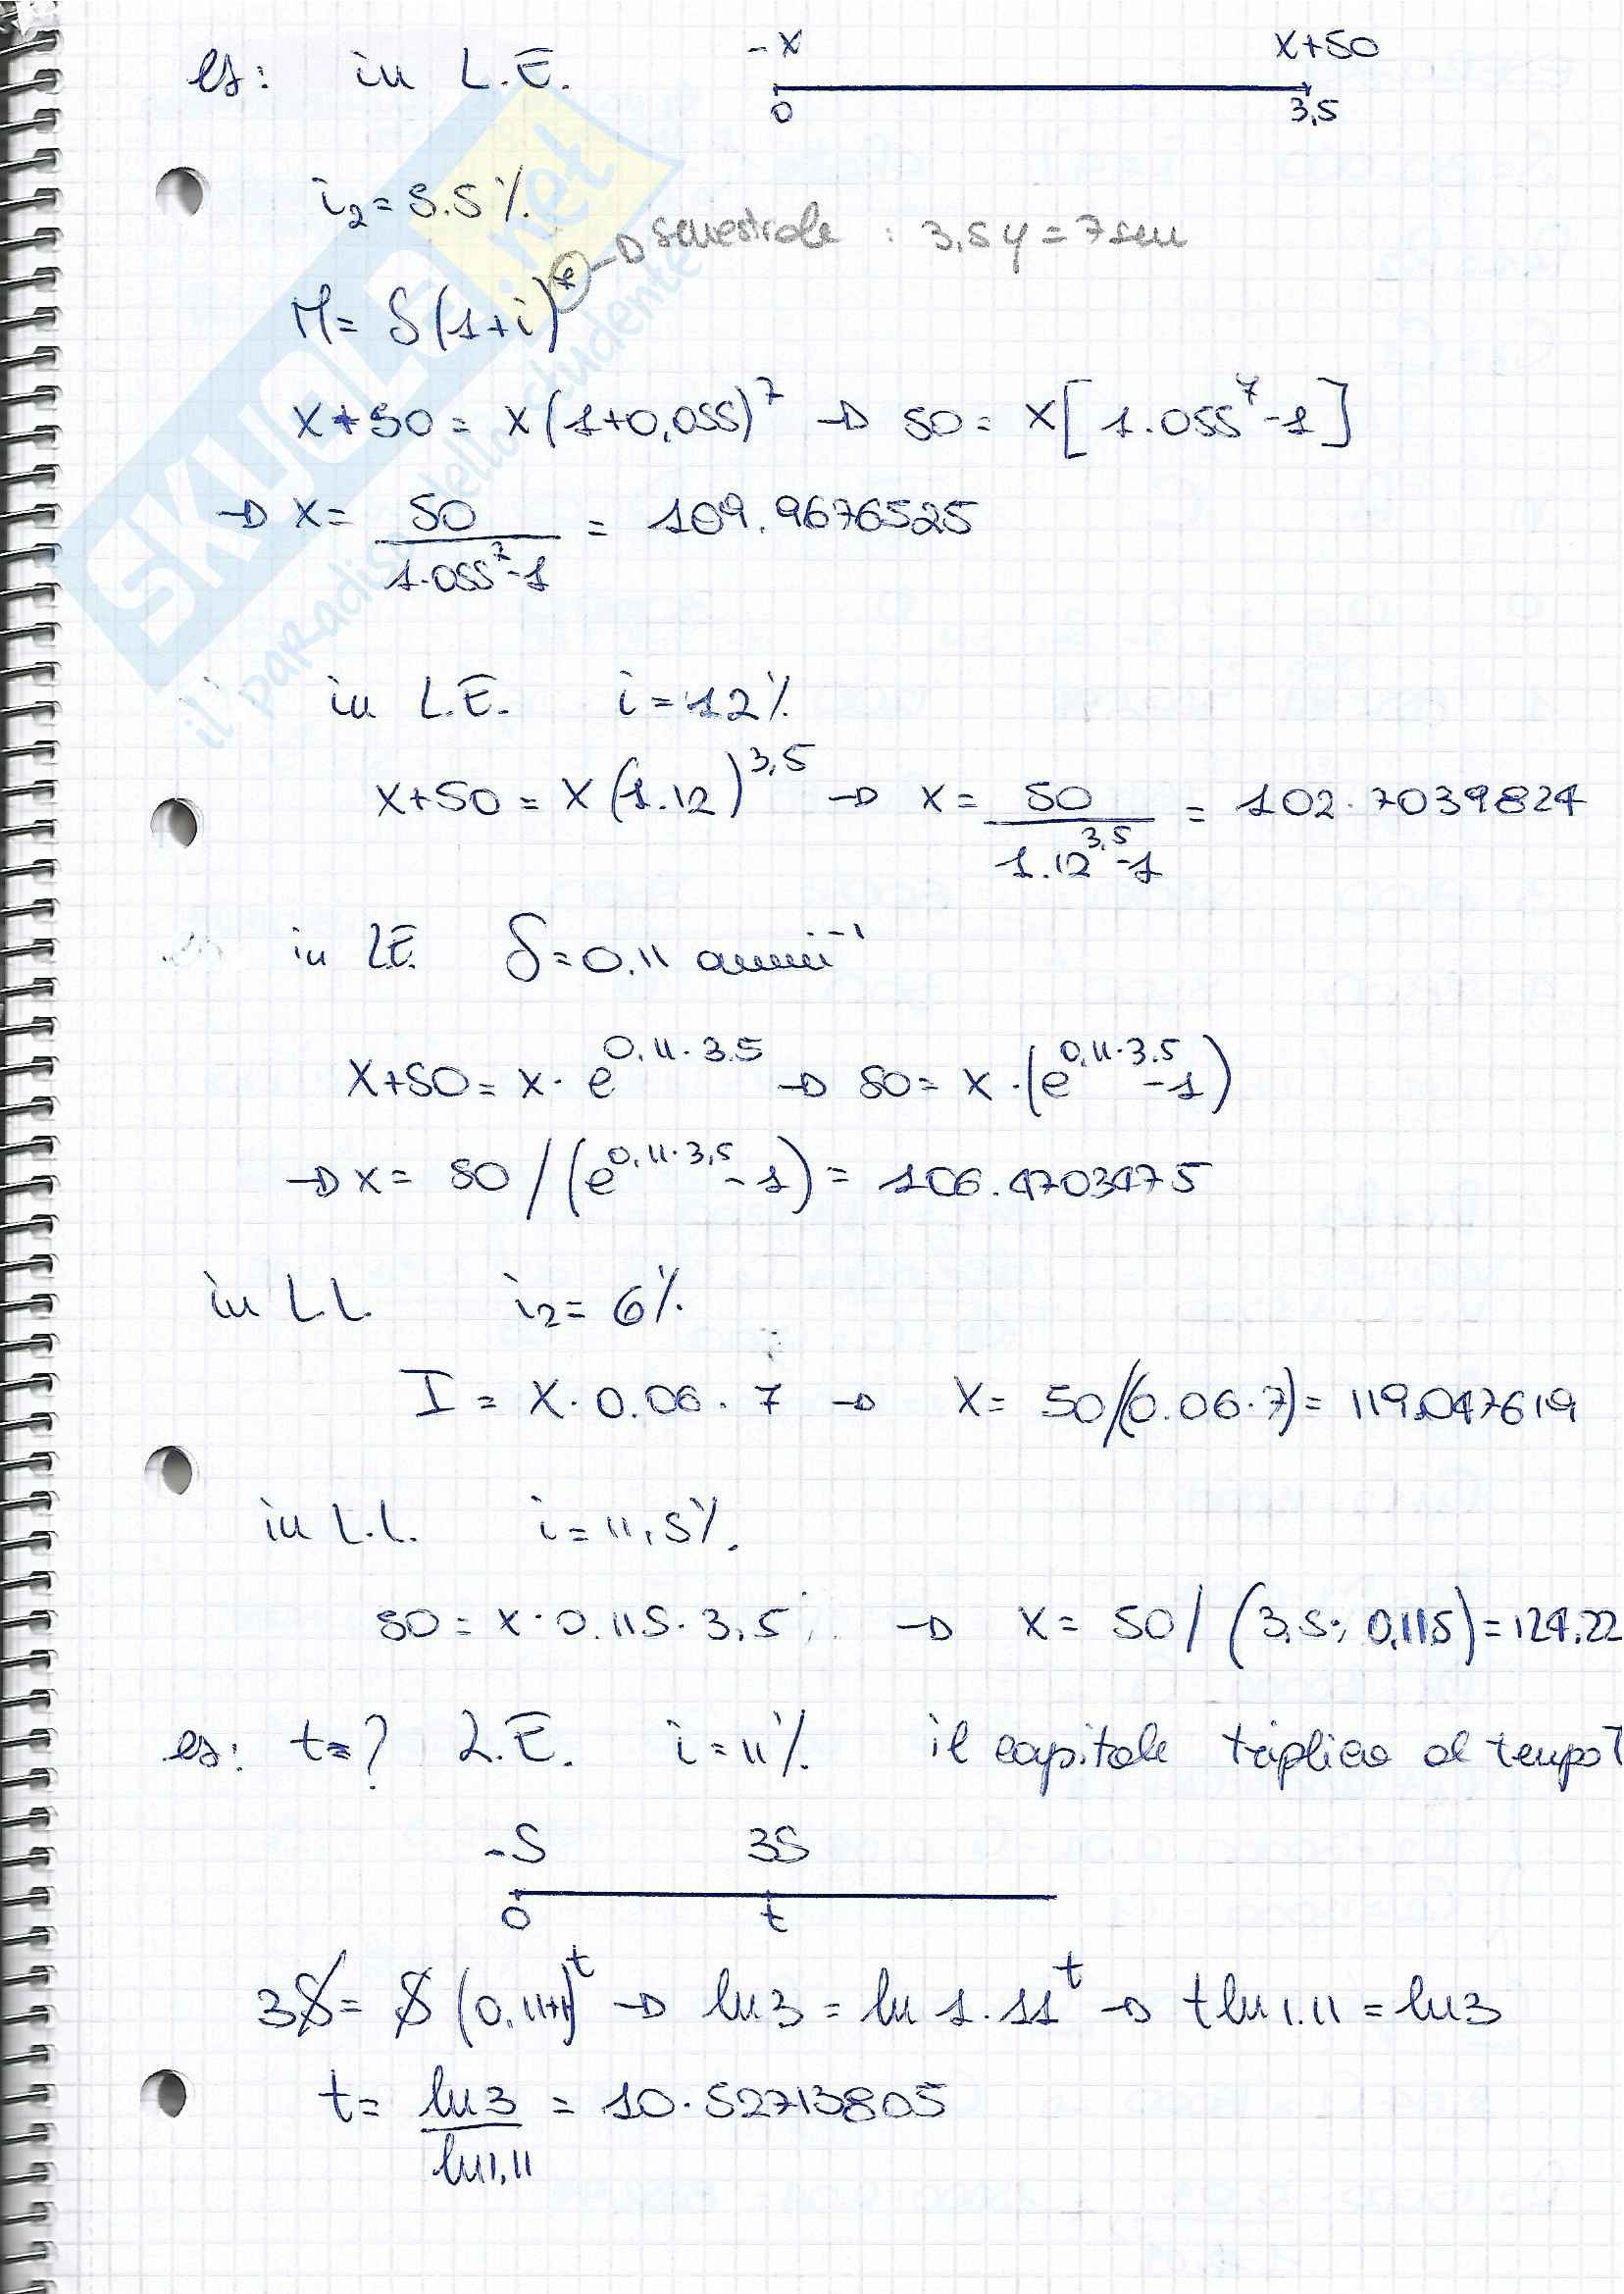 es: in L.E. -x x+50
0 3,5
i₂=5.5%
semestrale : 3,5 y = 7 sem
M = S(1+i)^t
x+50 = x(1+0,055)^7 → 50 = x[1.055^7-1]
→ x = 50/(1.055^7-1) = 109.9676525
in L.E. i=12%
x+50 = x(1.12)^3,5 → x = 50/(1.12^3,5-1) = 102.7039824
in L.E. δ=0.11 anni^-1
x+50 = x·e^0.11·3.5 → 50 = x·(e^0.11·3.5-1)
→ x = 50/(e^0.11·3,5-1) = 106.4703475
in L.L. i₂=6%
I = x·0.06·7 → x = 50/(0.06·7) = 119.047619
in L.L. i=11,5%
50 = x·0.115·3,5 → x = 50/(3,5·0,115) = 124.22
es: t=? L.E. i=11% il capitale triplica al tempo T
-S 3S
0 t
3S = S(0,11+1)^t → ln3 = ln 1.11^t → t ln1.11 = ln3
t = ln3/ln1,11 = 10.52713805
SKUOLA.net
il paradiso dello studente